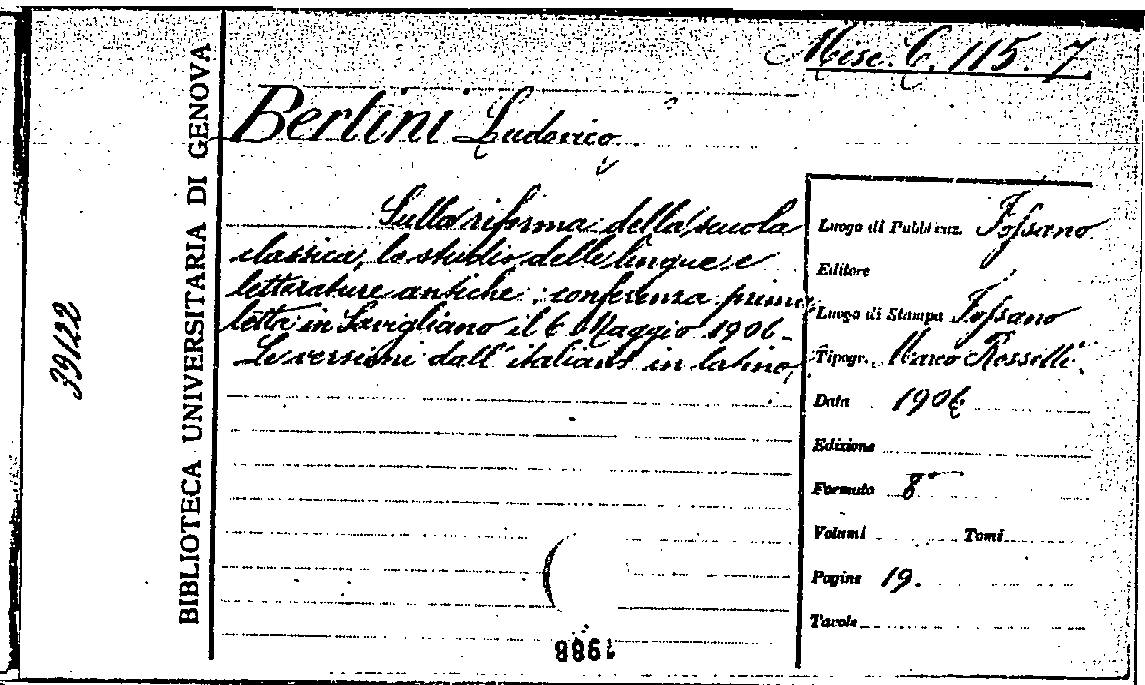 Misc. C. 115. 7
Bertini Ludovico
Sulla riforma della scuola
classica, lo studio delle lingue e
letterature antiche: conferenza prima
letta in Savigliano il 6 Maggio 1906-
Le versioni dall'italiano in latino,
Luogo di Pubblicaz. Fossano
Editore
Luogo di Stampa Fossano
Tipogr. Marco Rosselli.
Data 1906
Edizione
Formato 8°
Volumi Tomi
Pagine 19.
Tavole
BIBLIOTECA UNIVERSITARIA DI GENOVA
39122
1988